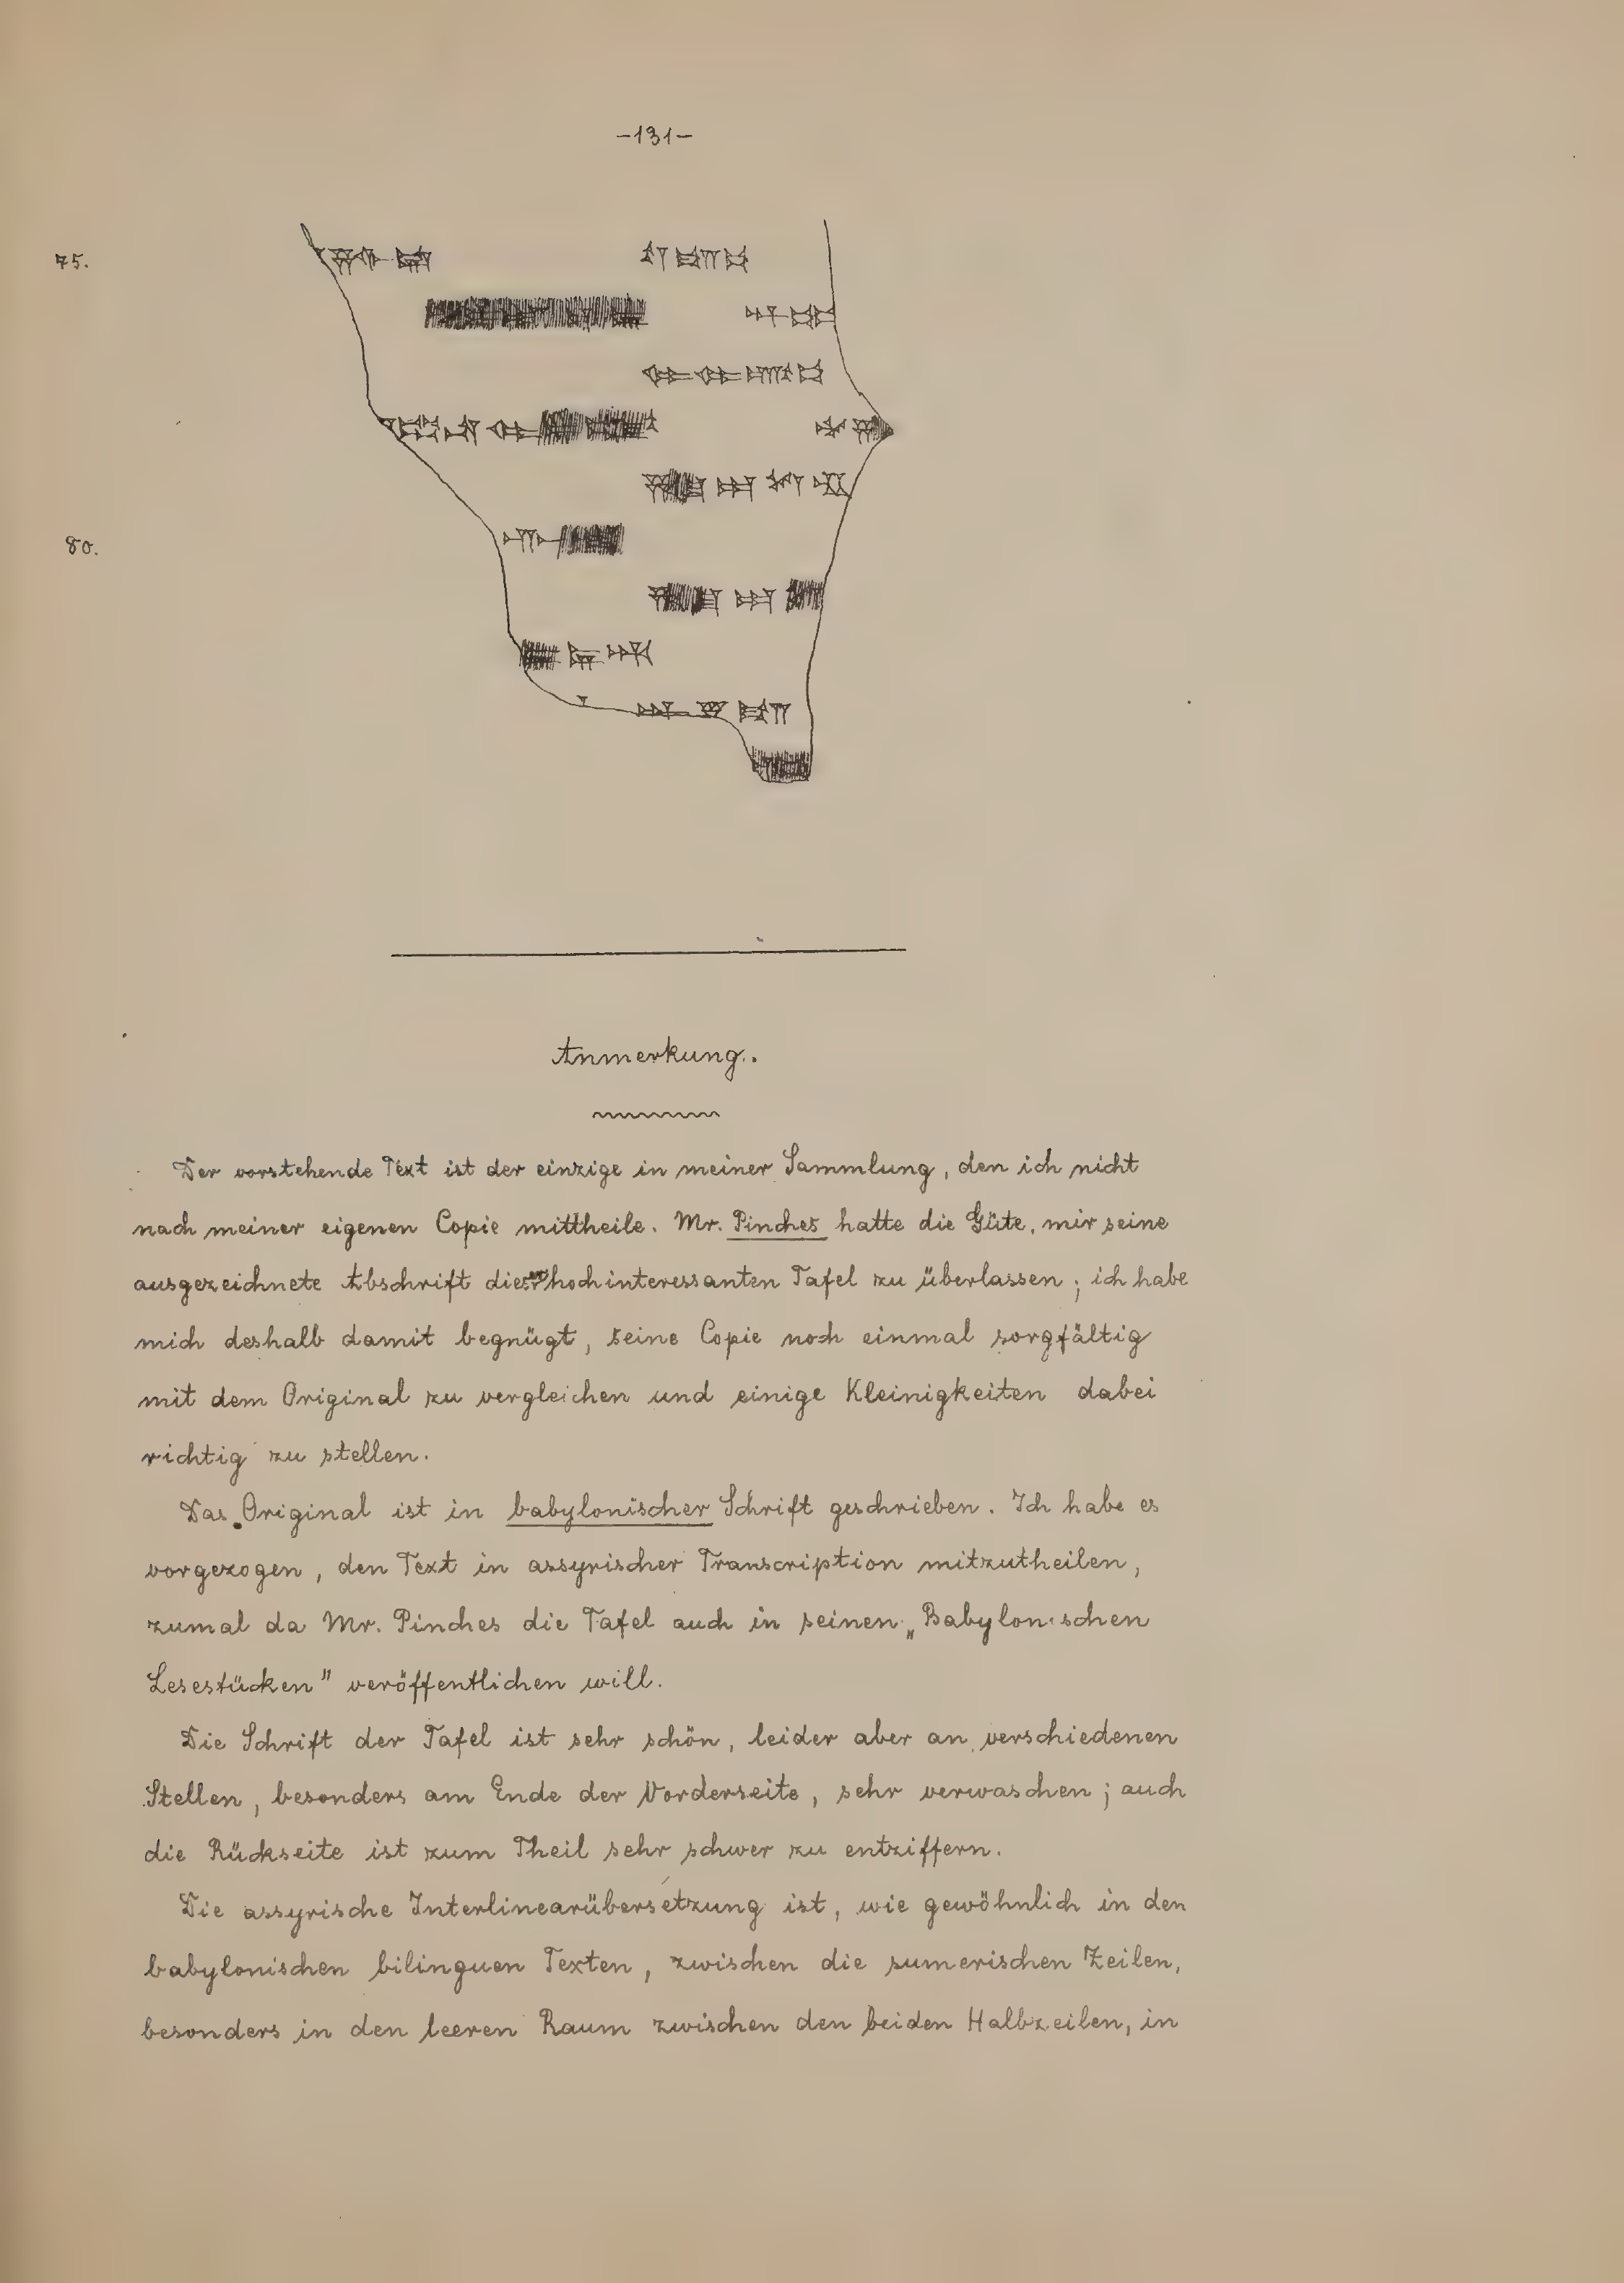 -131-
75.
80.
Anmerkung.
Der vorstehende Text ist der einzige in meiner Sammlung, den ich nicht
nach meiner eigenen Copie mittheile. Mr. Pinches hatte die Güte, mir seine
ausgezeichnete Abschrift dieser hochinteressanten Tafel zu überlassen; ich habe
mich deshalb damit begnügt, seine Copie noch einmal sorgfältig
mit dem Original zu vergleichen und einige Kleinigkeiten dabei
richtig zu stellen.
Das Original ist in babylonischer Schrift geschrieben. Ich habe es
vorgezogen, den Text in assyrischer Transcription mitzutheilen,
zumal da Mr. Pinches die Tafel auch in seinen „Babylonischen
Lesestücken" veröffentlichen will.
Die Schrift der Tafel ist sehr schön, leider aber an verschiedenen
Stellen, besonders am Ende der Vorderseite, sehr verwaschen; auch
die Rückseite ist zum Theil sehr schwer zu entziffern.
Die assyrische Interlinearübersetzung ist, wie gewöhnlich in den
babylonischen bilinguen Texten, zwischen die sumerischen Zeilen,
besonders in den leeren Raum zwischen den beiden Halbzeilen, in